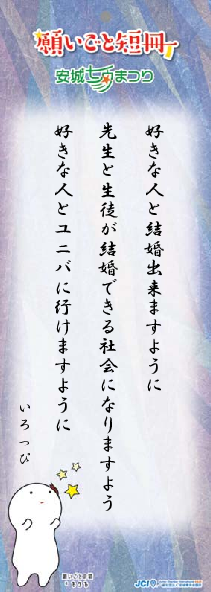 願いごと短冊
安城七夕まつり
好きな人と結婚出来ますように
先生と生徒が結婚できる社会になりますよう
好きな人とユニバに行けますように
いろっぴ
願いごと短冊
JCI